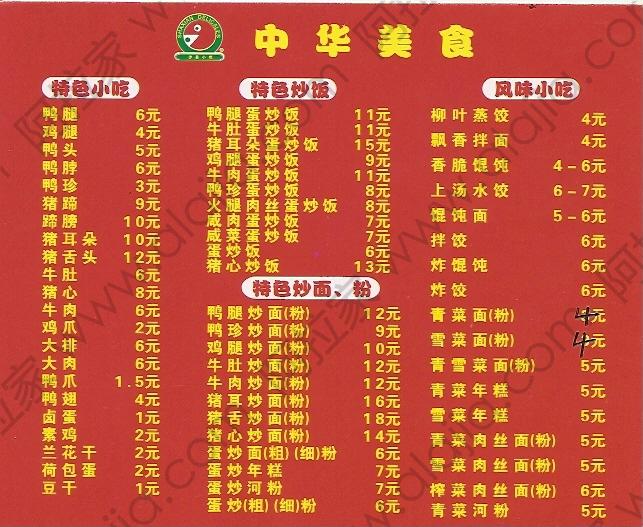 中华美食
特色小吃
鸭腿 6元
鸡腿 4元
鸭头 5元
鸭脖 6元
鸭珍 3元
猪蹄 9元
蹄膀 10元
猪耳朵 10元
猪舌头 12元
牛肚 6元
猪心 8元
牛肉 6元
鸡爪 2元
大排 6元
大肉 6元
鸭爪 1.5元
鸭翅 4元
卤蛋 1元
素鸡 2元
兰花干 2元
荷包蛋 2元
豆干 1元
特色炒饭
鸭腿蛋炒饭 11元
牛肚蛋炒饭 11元
猪耳朵蛋炒饭 15元
鸡腿蛋炒饭 9元
牛肉蛋炒饭 11元
鸭珍蛋炒饭 8元
火腿肉丝蛋炒饭 8元
咸肉蛋炒饭 7元
咸菜蛋炒饭 7元
蛋炒饭 6元
猪心炒饭 13元
特色炒面、粉
鸭腿炒面(粉) 12元
鸭珍炒面(粉) 9元
鸡腿炒面(粉) 10元
牛肚炒面(粉) 12元
牛肉炒面(粉) 12元
猪耳炒面(粉) 16元
猪舌炒面(粉) 18元
猪心炒面(粉) 14元
蛋炒面(粗)(细)粉 6元
蛋炒年糕 7元
蛋炒河粉 7元
蛋炒(粗)(细)粉 6元
风味小吃
柳叶蒸饺 4元
飘香拌面 4元
香脆馄饨 4-6元
上汤水饺 6-7元
馄饨面 5-6元
拌饺 6元
炸馄饨 6元
炸饺 6元
青菜面(粉) 4元
雪菜面(粉) 4
青雪菜面(粉) 5元
青菜年糕 5元
雪菜年糕 5元
青菜肉丝面(粉) 5元
雪菜肉丝面(粉) 5元
榨菜肉丝面(粉) 6元
青菜河粉 5元
阿拉家 www.alajia.com